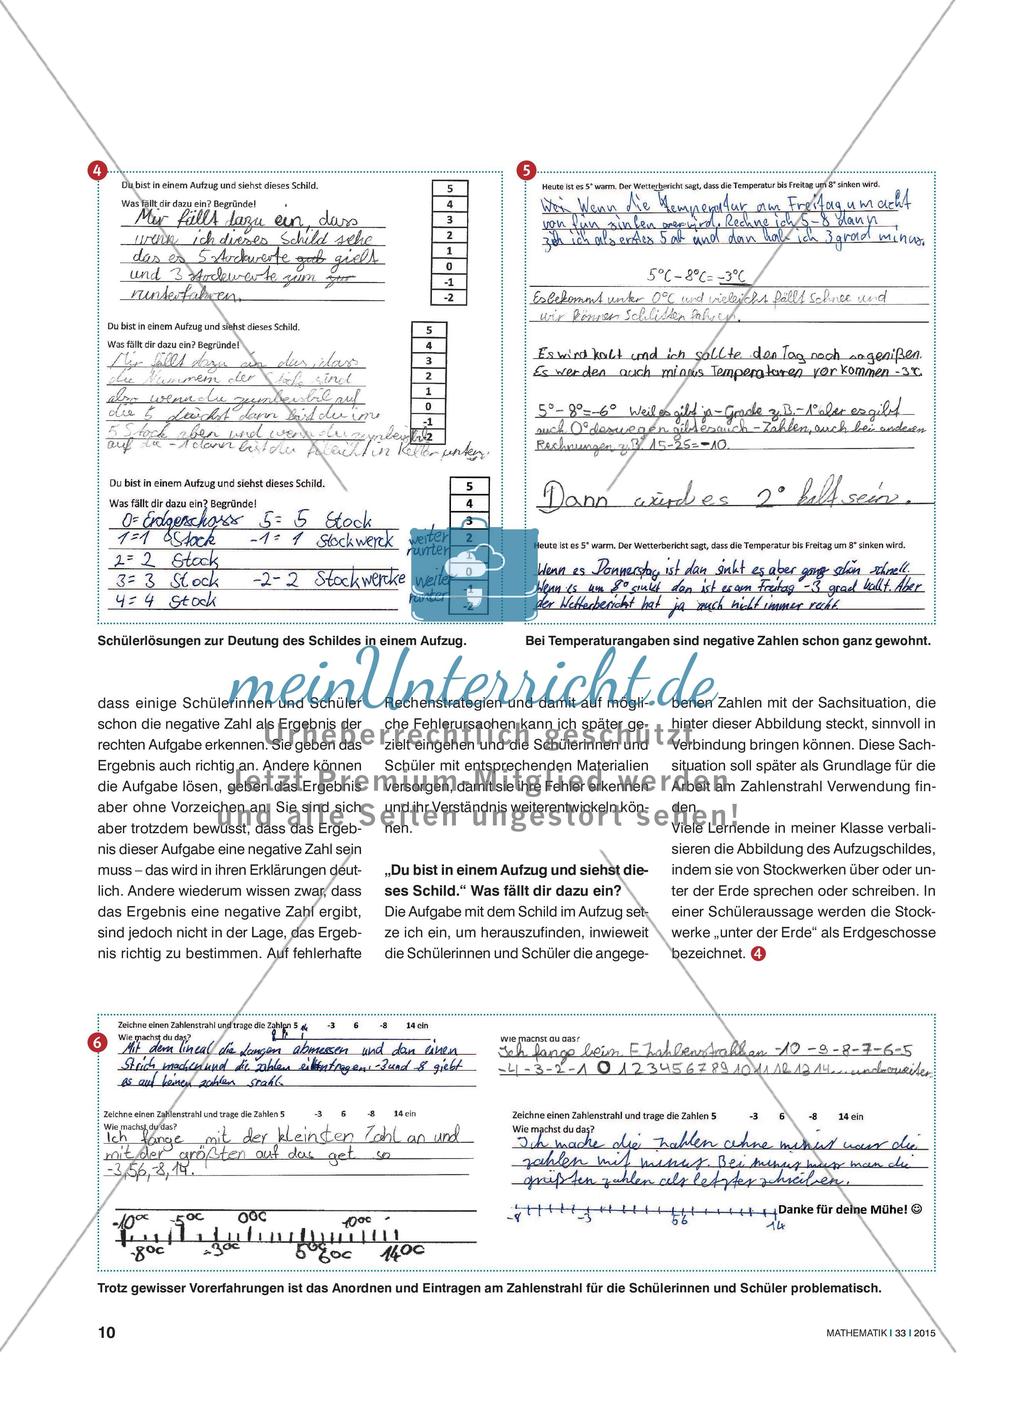 4
Du bist in einem Aufzug und siehst dieses Schild.
Was fällt dir dazu ein? Begründe!
Mir fällt dazu ein, dass
wenn ich dieses Schild sehe
das es 5 stockwerke gielt
und 3 stockewerte zum
runterfahren.
5
4
3
2
1
0
-1
-2
Du bist in einem Aufzug und siehst dieses Schild.
Was fällt dir dazu ein? Begründe!
Mir fällt dazu ein das, dass
die Nummern der Stocke sind
also wenn du zum beispiel auf
die 5 drückst dann bist du im
5 Stock oben und wenn du zum beispiel
auf die -1 dann bist du in Keller unten.
5
4
3
2
1
0
-1
-2
Du bist in einem Aufzug und siehst dieses Schild.
Was fällt dir dazu ein? Begründe!
0= Erdgeschoss 5= 5 Stock
1=1 Stock -1= 1 Stockwerk weiter runter
2= 2 Stock
3= 3 Stock -2-2 Stockwercke weiter runter
4= 4 Stock
5
4
3
2
1
0
-1
-2
Schülerlösungen zur Deutung des Schildes in einem Aufzug.
5
Heute ist es 5° warm. Der Wetterbericht sagt, dass die Temperatur bis Freitag um 8° sinken wird.
Wenn die Temperatur am Freitag um acht
von fün sinken wird. Rechne ich 5-8 dann
zäh ich als erstes 5 ab und dan hab ich 3 grad minus.
5°C - 8°C= -3°C
Es bekommt unter 0°C und vieleicht fällt Schnee und
wir können Schlitten fahren.
Es wird kalt und ich sollte den Tag noch so genißen.
Es werden auch minus Temperaturen vorkommen -3°C.
5°-8°=-6° Weil es gibt ja -Grade z.B. -1° aber es gibt
auch 0° deswegen gibt es auch -Zahlen, auch bei anderen
Rechnungen z.B. 15-25=-10.
Dann würd es 2° kalt sein.
Heute ist es 5° warm. Der Wetterbericht sagt, dass die Temperatur bis Freitag um 8° sinken wird.
Wenn es Donnerstag ist dan sinkt es aber ganz schön schnell.
Wenn es um 8° sinkt dan ist es am Freitag -3 grad kallt. Aber
der Wetterbericht hat ja auch nicht immer recht
Bei Temperaturangaben sind negative Zahlen schon ganz gewohnt.
meinUnterricht.de
Urheberrechtlich geschützt
Jetzt Premium-Mitglied werden
und alle Seiten ungestört sehen!
dass einige Schülerinnen und Schüler
schon die negative Zahl als Ergebnis der
rechten Aufgabe erkennen. Sie geben das
Ergebnis auch richtig an. Andere können
die Aufgabe lösen, geben das Ergebnis
aber ohne Vorzeichen an. Sie sind sich
aber trotzdem bewusst, dass das Ergeb-
nis dieser Aufgabe eine negative Zahl sein
muss – das wird in ihren Erklärungen deut-
lich. Andere wiederum wissen zwar, dass
das Ergebnis eine negative Zahl ergibt,
sind jedoch nicht in der Lage, das Ergeb-
nis richtig zu bestimmen. Auf fehlerhafte
Rechenstrategien und damit auf mögli-
che Fehlerursachen kann ich später ge-
zielt eingehen und die Schülerinnen und
Schüler mit entsprechenden Materialien
versorgen, damit sie ihre Fehler erkennen
und ihr Verständnis weiterentwickeln kön-
nen.
„Du bist in einem Aufzug und siehst die-
ses Schild.“ Was fällt dir dazu ein?
Die Aufgabe mit dem Schild im Aufzug set-
ze ich ein, um herauszufinden, inwieweit
die Schülerinnen und Schüler die angege-
benen Zahlen mit der Sachsituation, die
hinter dieser Abbildung steckt, sinnvoll in
Verbindung bringen können. Diese Sach-
situation soll später als Grundlage für die
Arbeit am Zahlenstrahl Verwendung fin-
den.
Viele Lernende in meiner Klasse verbali-
sieren die Abbildung des Aufzugschildes,
indem sie von Stockwerken über oder un-
ter der Erde sprechen oder schreiben. In
einer Schüleraussage werden die Stock-
werke „unter der Erde“ als Erdgeschosse
bezeichnet. 4
6
Zeichne einen Zahlenstrahl und trage die Zahlen 5 -3 6 -8 14 ein
Wie machst du das?
Mit dem lineal die langen abmessen und dan einen
Strich machen und die zahlen eintragen. -3 und -8 giebt
es auf keinen zahlen strahl.
Wie machst du das?
Ich fange beim Zahlenstrahl an -10 -9-8-7-6-5
-4-3-2-1 0 1 2 3 4 5 6 7 8 9 10 11 12 13 14... und so weiter
Zeichne einen Zahlenstrahl und trage die Zahlen 5 -3 6 -8 14 ein
Wie machst du das?
Ich fange mit der kleinsten Zahl an und
mit der größten auf das get so
-3,56,-8,14.
-10°C -5°C 0°C 10°C
-8°C -3°C 5°C 6°C 14°C
Zeichne einen Zahlenstrahl und trage die Zahlen 5 -3 6 -8 14 ein
Wie machst du das?
Ich mache die zahlen ohne minus vor die
zahlen mit minus. Bei minus muss man die
größten zahlen als letzter schreiben.
-8 -3 56 14
Danke für deine Mühe! ☺
Trotz gewisser Vorerfahrungen ist das Anordnen und Eintragen am Zahlenstrahl für die Schülerinnen und Schüler problematisch.
10
MATHEMATIK I 33 I 2015